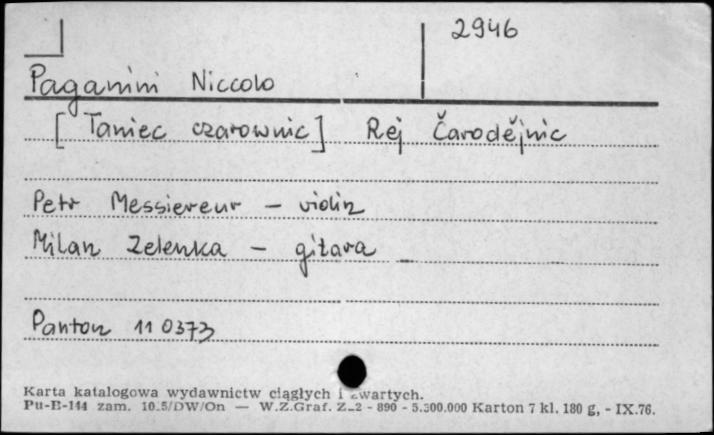 2946
Paganini Niccolo
[Taniec czarownic] Rej Čarodějnic
Petr Messiereur - violin
Milan Zelenka - gitara
Panton 11 0373
Karta katalogowa wydawnictw ciągłych i zwartych.
Pu-B-144 zam. 10.5/DW/On — W.Z.Graf. Z-2 - 890 - 5.300.000 Karton 7 kl. 180 g, - IX.76.